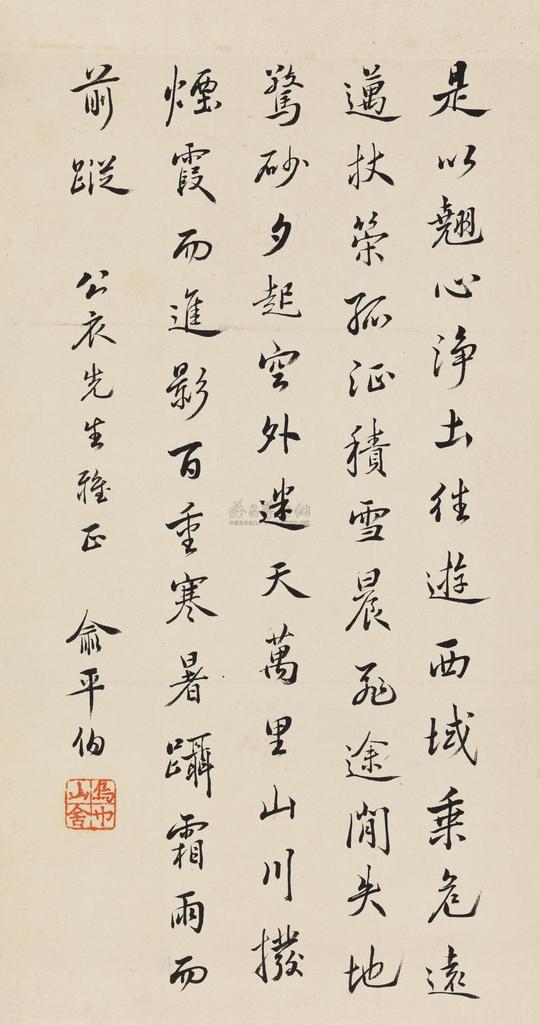 是以翹心淨土往遊西域乘危遠
邁杖策孤征積雪晨飛途閒失地
驚砂夕起空外迷天萬里山川撥
煙霞而進影百重寒暑躡霜雨而
前蹤 公衣先生雅正 俞平伯
烏巾山舍